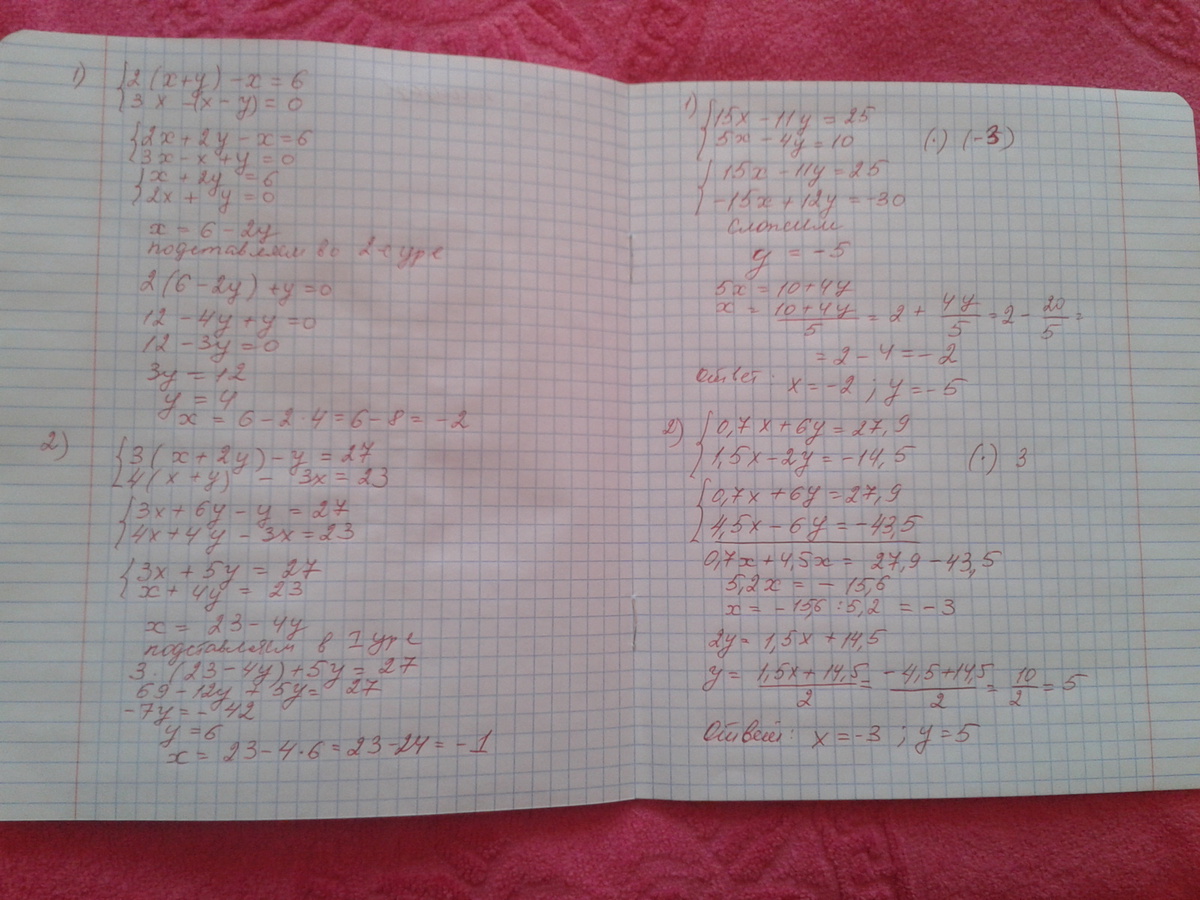 1) {2(x+y)-x=6
{3x-(x-y)=0
{2x+2y-x=6
{3x-x+y=0
{x+2y=6
{2x+y=0
x=6-2y
подставляем во 2-е ур-е
2(6-2y)+y=0
12-4y+y=0
12-3y=0
3y=12
y=4
x=6-2·4=6-8=-2
2) {3(x+2y)-y=27
{4(x+y)-3x=23
{3x+6y-y=27
{4x+4y-3x=23
{3x+5y=27
{x+4y=23
x=23-4y
подставляем в 1 ур-е
3·(23-4y)+5y=27
69-12y+5y=27
-7y=-42
y=6
x=23-4·6=23-24=-1
1) {15x-11y=25
{5x-4y=10 (·) (-3)
{15x-11y=25
{-15x+12y=-30
сложим
y=-5
5x=10+4y
x=(10+4y)/5=2+4y/5=2-20/5=
=2-4=-2
Ответ: x=-2; y=-5
2) {0,7x+6y=27,9
{1,5x-2y=-14,5 (·) 3
{0,7x+6y=27,9
{4,5x-6y=-43,5
0,7x+4,5x=27,9-43,5
5,2x=-15,6
x=-15,6:5,2=-3
2y=1,5x+14,5
y=(1,5x+14,5)/2=(-4,5+14,5)/2=10/2=5
Ответ: x=-3; y=5